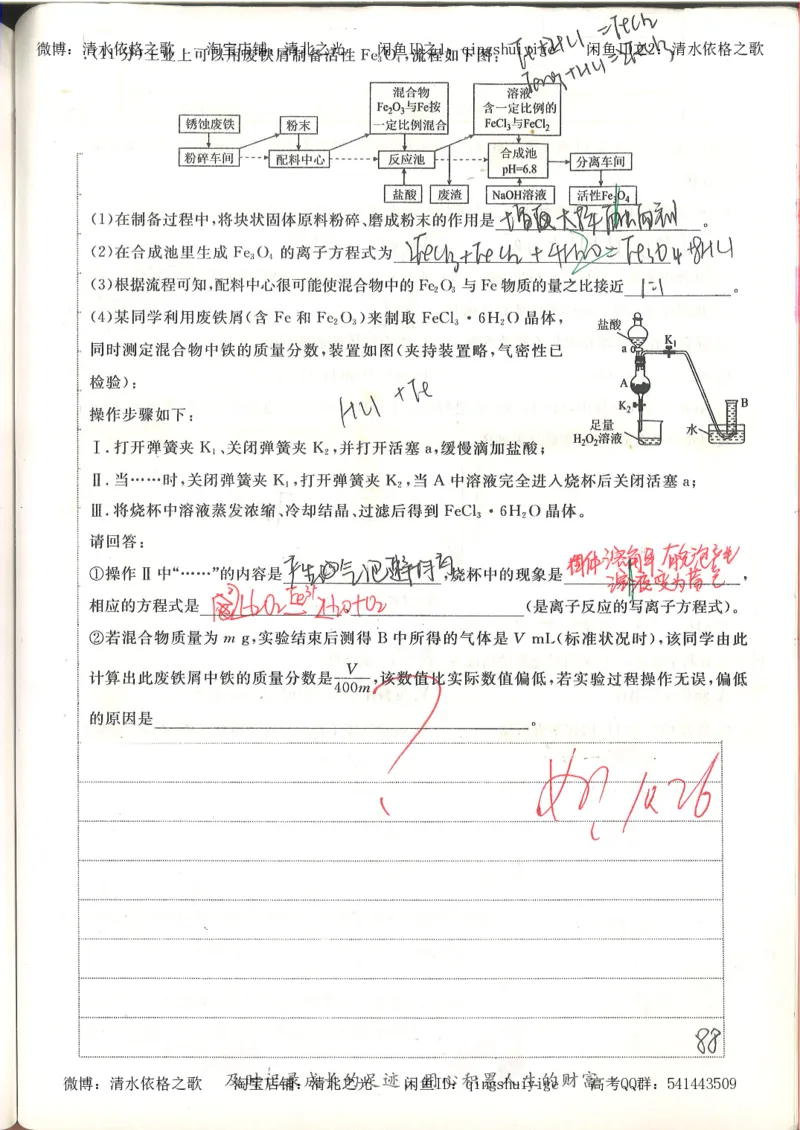 微博：清水依格之歌 淘宝店铺：清北之光 闲鱼ID之1：qingshuiyige 闲鱼ID之2：清水依格之歌
(11分)工业上可以用废铁屑制备活性Fe₃O₄,流程如下图:
混合物 Fe₂O₃与Fe按一定比例混合
溶液 含一定比例的FeCl₃与FeCl₂
锈蚀废铁 粉末
粉碎车间 配料中心 反应池 合成池 pH=6.8 分离车间
盐酸 废渣 NaOH溶液 活性Fe₃O₄
(1)在制备过程中,将块状固体原料粉碎、磨成粉末的作用是 。
(2)在合成池里生成 Fe₃O₄ 的离子方程式为 2FeCl₃+FeCl₂+4H₂O=Fe₃O₄+8HCl
(3)根据流程可知,配料中心很可能使混合物中的 Fe₂O₃ 与 Fe 物质的量之比接近 1:1 。
(4)某同学利用废铁屑(含 Fe 和 Fe₂O₃)来制取 FeCl₃·6H₂O 晶体,
同时测定混合物中铁的质量分数,装置如图(夹持装置略,气密性已
检验):
盐酸
a
K₁
A
K₂
B
足量
H₂O₂溶液
水
HCl +Fe
操作步骤如下:
Ⅰ.打开弹簧夹 K₁、关闭弹簧夹 K₂,并打开活塞 a,缓慢滴加盐酸;
Ⅱ.当……时,关闭弹簧夹 K₁,打开弹簧夹 K₂,当 A 中溶液完全进入烧杯后关闭活塞 a;
Ⅲ.将烧杯中溶液蒸发浓缩、冷却结晶、过滤后得到 FeCl₃·6H₂O 晶体。
请回答:
①操作Ⅱ中“……”的内容是 ,烧杯中的现象是 ,
相应的方程式是 2H₂O₂ Fe³⁺ 2H₂O+O₂ (是离子反应的写离子方程式)。
②若混合物质量为 m g,实验结束后测得 B 中所得的气体是 V mL(标准状况时),该同学由此
计算出此废铁屑中铁的质量分数是 V/400m ,该数值比实际数值偏低,若实验过程操作无误,偏低
的原因是 。
88
及时记录成长的足迹,用心积累人生的财富
微博：清水依格之歌 淘宝店铺：清北之光 闲鱼ID：qingshuiyige 高考QQ群：541443509